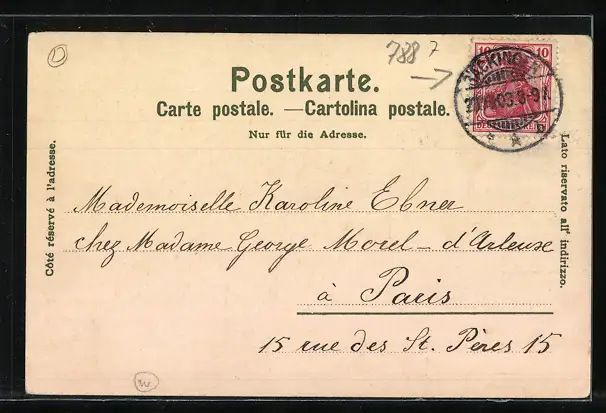 788 7
10 10
Postkarte.
Carte postale. — Cartolina postale.
Nur für die Adresse.
Côté réservé à l'adresse.
Lato riservato all' indirizzo.
Mademoiselle Karoline Ebner
chez Madame George Morel - d'Arleux
à Paris
15 rue des St. Pères 15